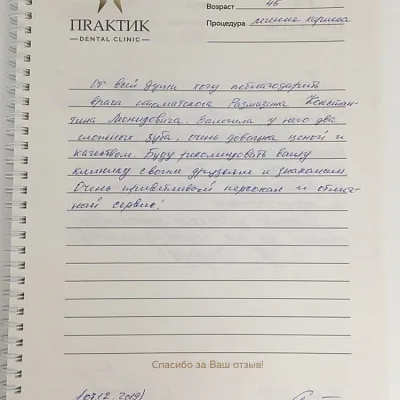 Возраст 46
ПRАКТИК
Процедура лечение кариеса
— DENTAL CLINIC —
От всей души хочу поблагодарить
врача стоматолога Размазина Констан-
тина Леонидовича. Залечила у него два
сложных зуба, очень довольна ценой и
качеством. Буду рекомендовать вашу
клинику своим друзьям и знакомым.
Очень приветливый персонал и отлич-
ный сервис!
Спасибо за Ваш отзыв!
(07.12.2019)